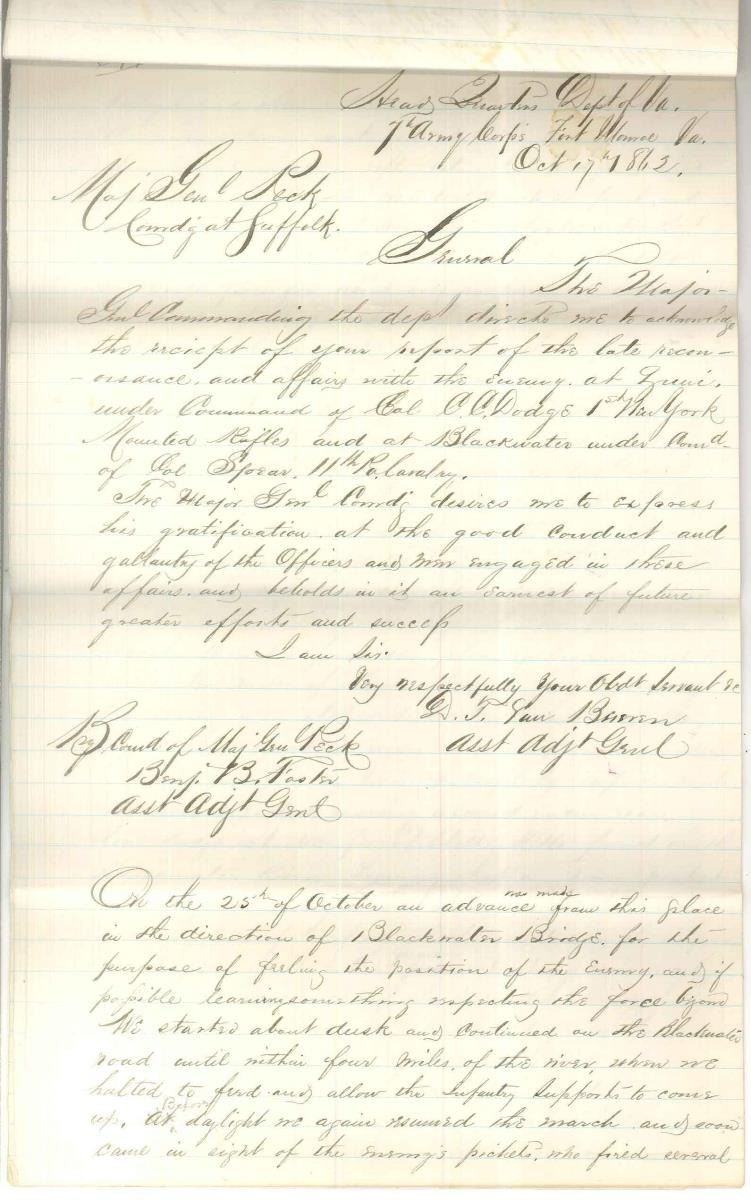 Head Quarters Dept of Va.
7th Army Corps Fort Monroe Va.
Oct 17th 1862.
Maj Genl Peck
Comdg at Suffolk.
General
The Major-
Genl Commanding the dept directs me to acknowledge
the reciept of your report of the late recon-
-oisance. and affairs with the enemy. at Zuni.
under Command of Col C. C. Dodge 1st New York
Mounted Rifles and at Blackwater under Comd-
of Col Spear. 11th Pa. Cavalry.
The Major Genl Comdg desires me to express
his gratification. at the good conduct and
gallantry of the Officers and men engaged in these
affairs. and beholds in it an earnest of future
greater efforts and success
I am Sir.
Very respectfully Your Obdt Servant &c
D. T. Van Buren
Asst Adjt Genl
By Comd of Maj Gen Peck
Benj. B. Foster
Asst Adjt Genl
On the 25th of October an advance was made from this place
in the direction of Blackwater Bridge. for the
purpose of feeling the position of the Enemy. and if
possible learning something respecting the force beyond
We started about dusk and continued on the Blackwater
road until within four miles. of the river, when we
halted to feed and allow the Infantry supports to come
up. At Before daylight we again resumed the march and soon
came in sight of the enemy's pickets. who fired several